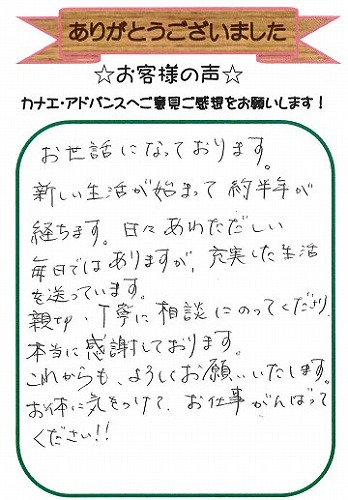 ありがとうございました
☆お客様の声☆
カナエ・アドバンスへご意見ご感想をお願いします！
お世話になっております。
新しい生活が始まって約半年が
経ちます。日々あわただしい
毎日ではありますが、充実した生活
を送っています。
親切、丁寧に相談にのってくださり、
本当に感謝しております。
これからも、よろしくお願いいたします。
お体に気をつけて、お仕事がんばって
ください!!